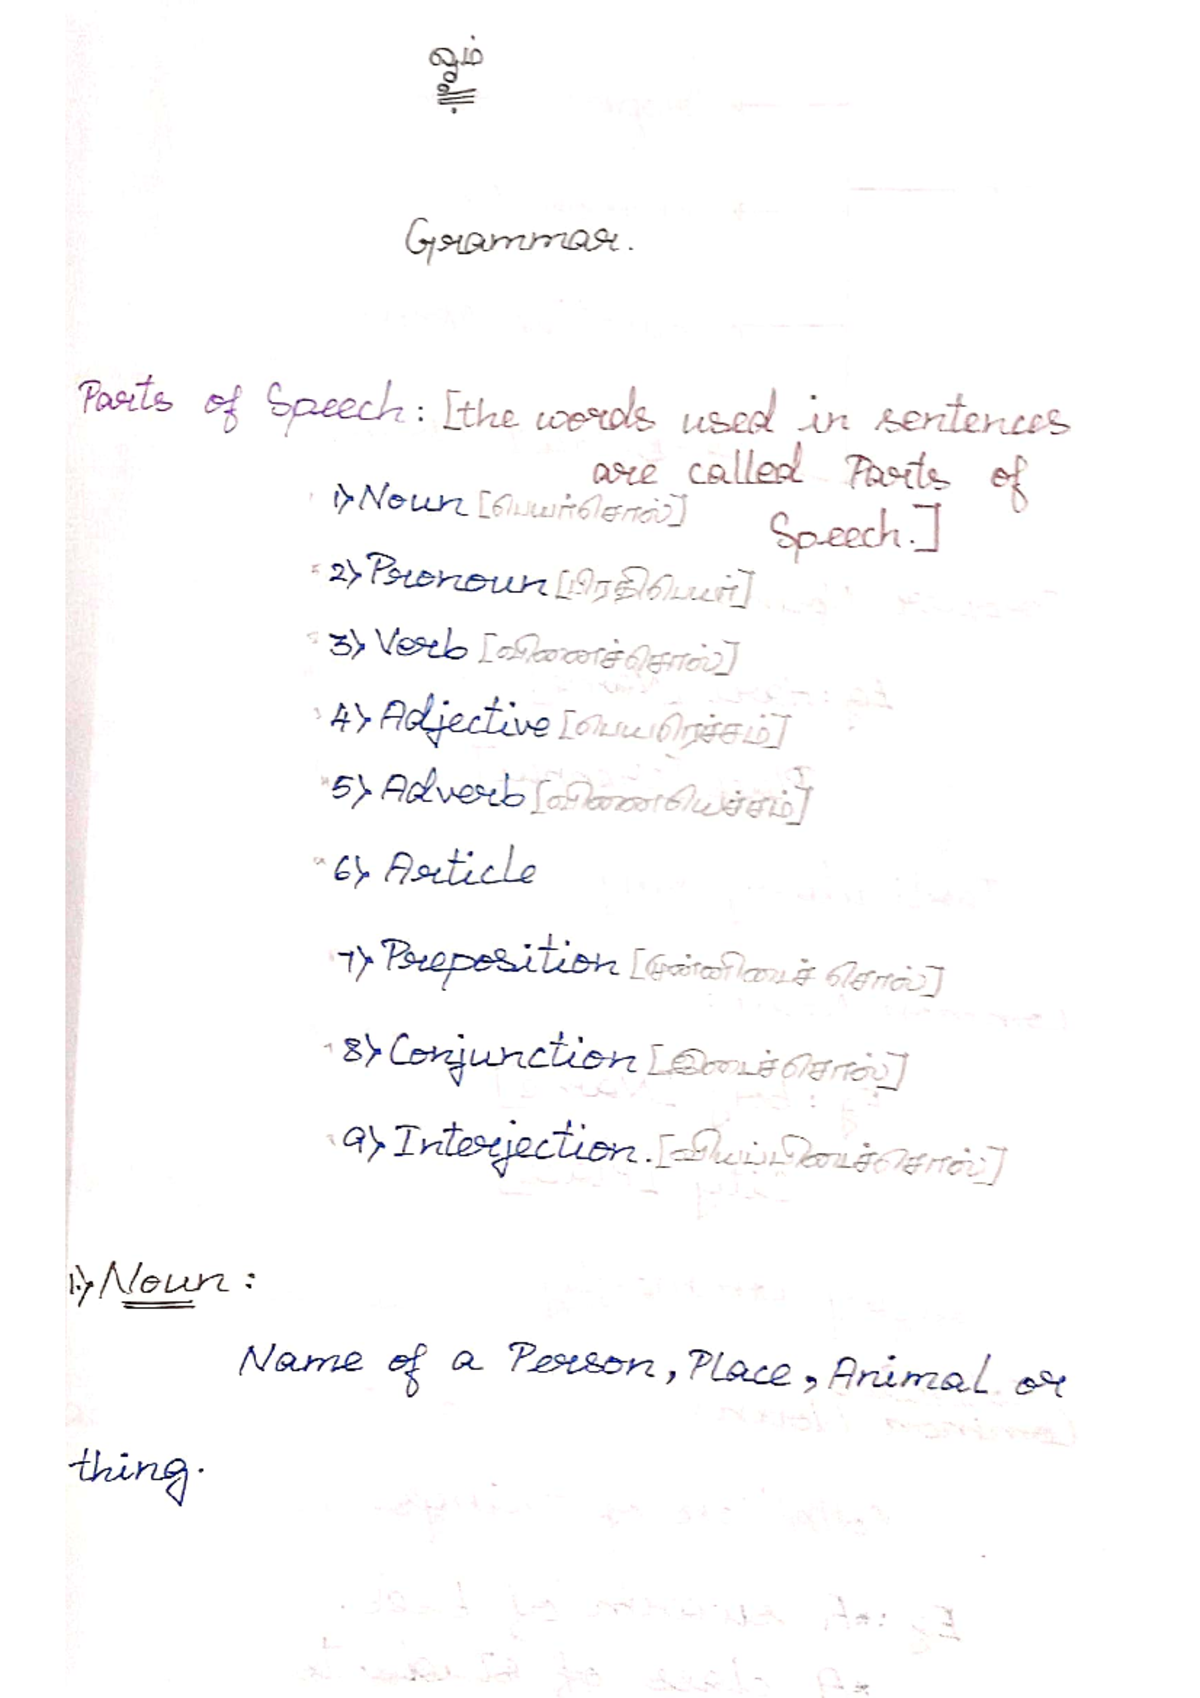 லும்
Grammar.
Parts of Speech: [the words used in sentences
are called Parts of
Speech.]
1) Noun [பெயர்சொல்]
2) Pronoun [பிரதிபெயர்]
3) Verb [வினைச்சொல்]
4) Adjective [பெயரெச்சம்]
5) Adverb [வினையெச்சம்]
6) Article
7) Preposition [முன்னிடைச் சொல்]
8) Conjunction [இடைச்சொல்]
9) Interjection. [வியப்பிடைச்சொல்]
1) Noun :
Name of a Person, Place, Animal or
thing.